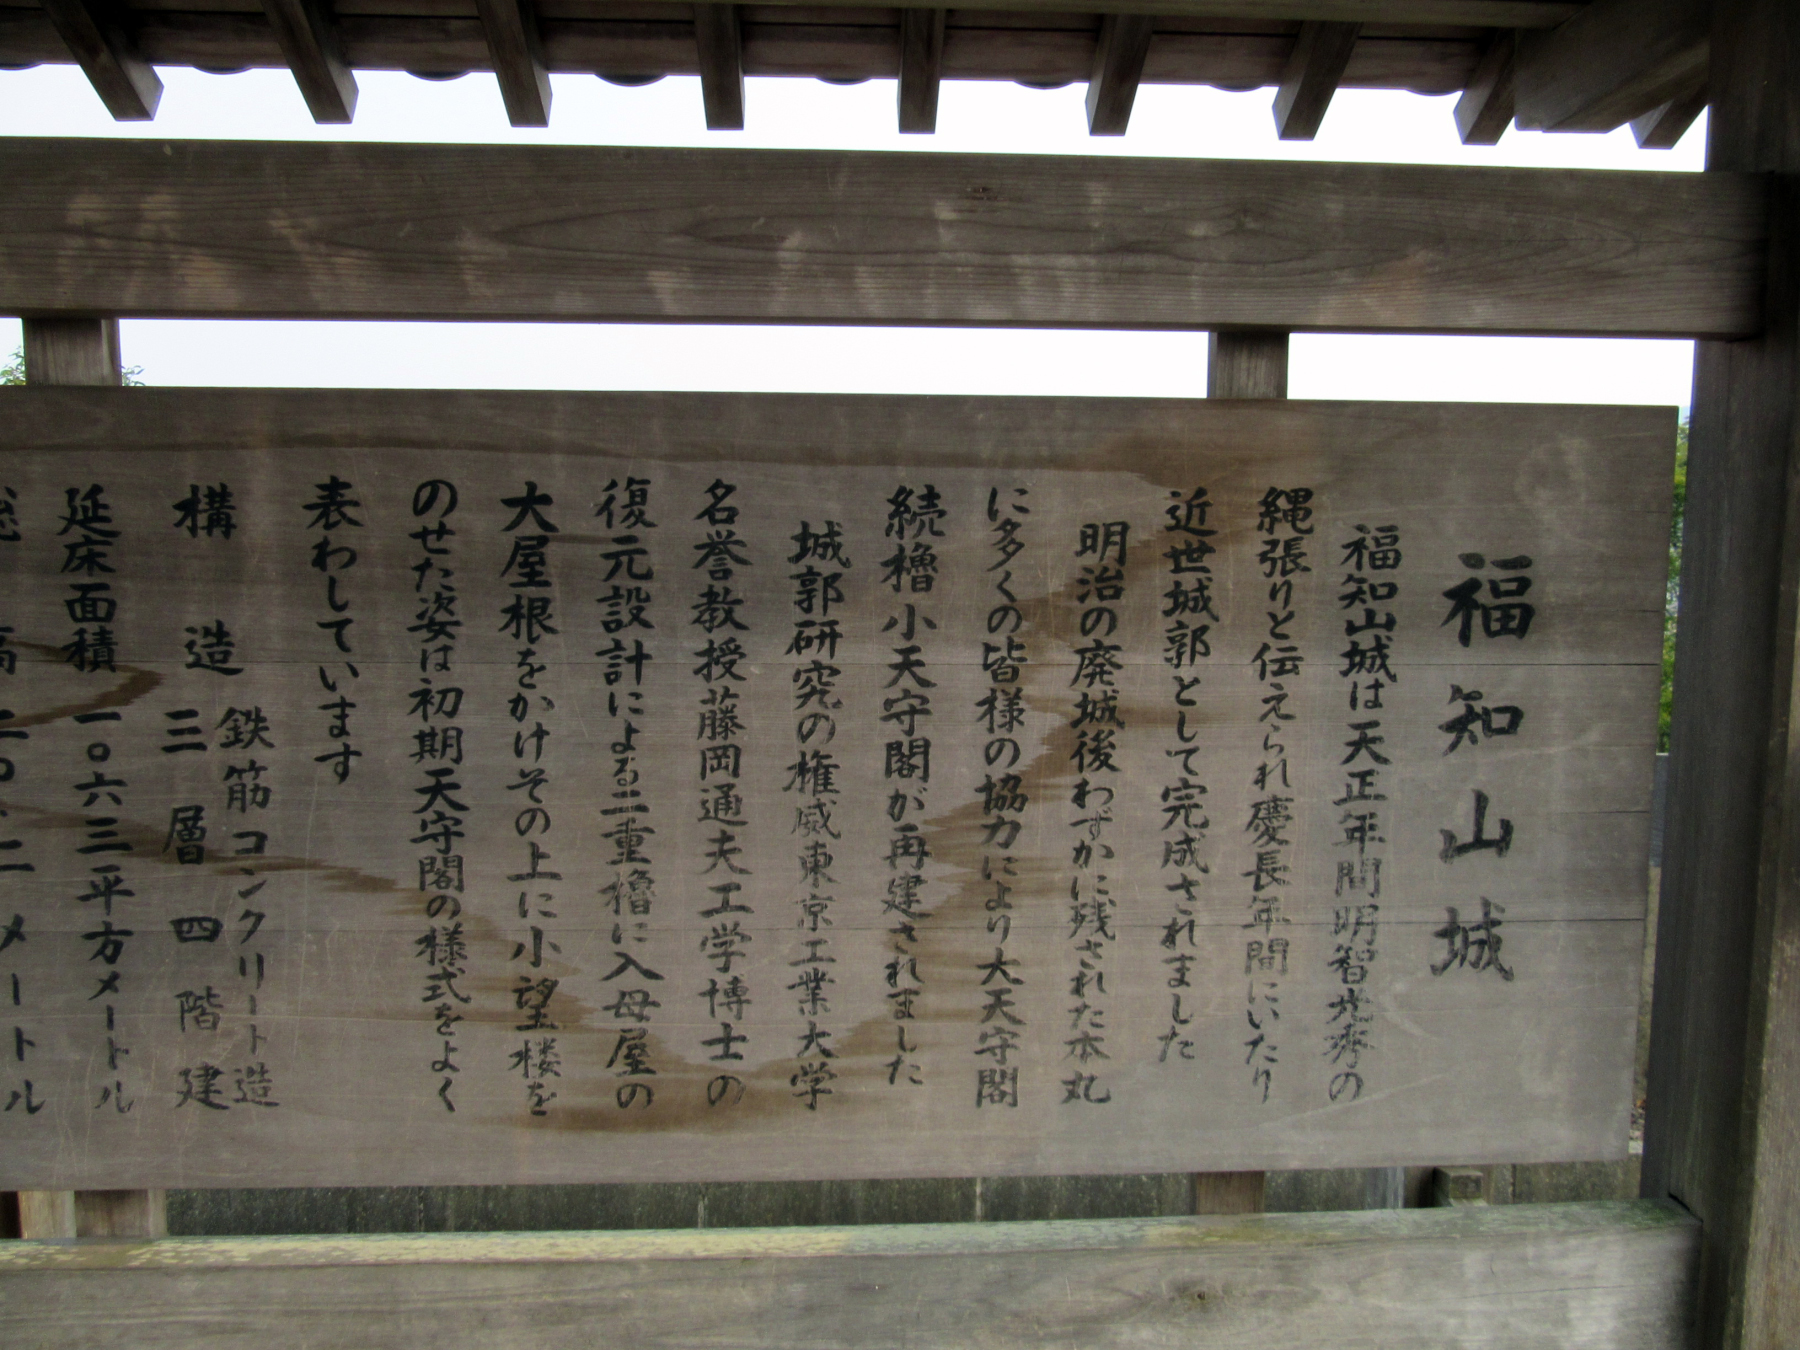 福知山城
福知山城は天正年間明智光秀の
縄張りと伝えられ慶長年間にいたり
近世城郭として完成されました
明治の廃城後わずかに残された本丸
に多くの皆様の協力により大天守閣
続櫓小天守閣が再建されました
城郭研究の権威東京工業大学
名誉教授藤岡通夫工学博士の
復元設計による二重櫓に入母屋の
大屋根をかけその上に小望楼を
のせた姿は初期天守閣の様式をよく
表わしています
構造 鉄筋コンクリート造
三層四階建
延床面積 一〇六三平方メートル
総高 二〇.二メートル